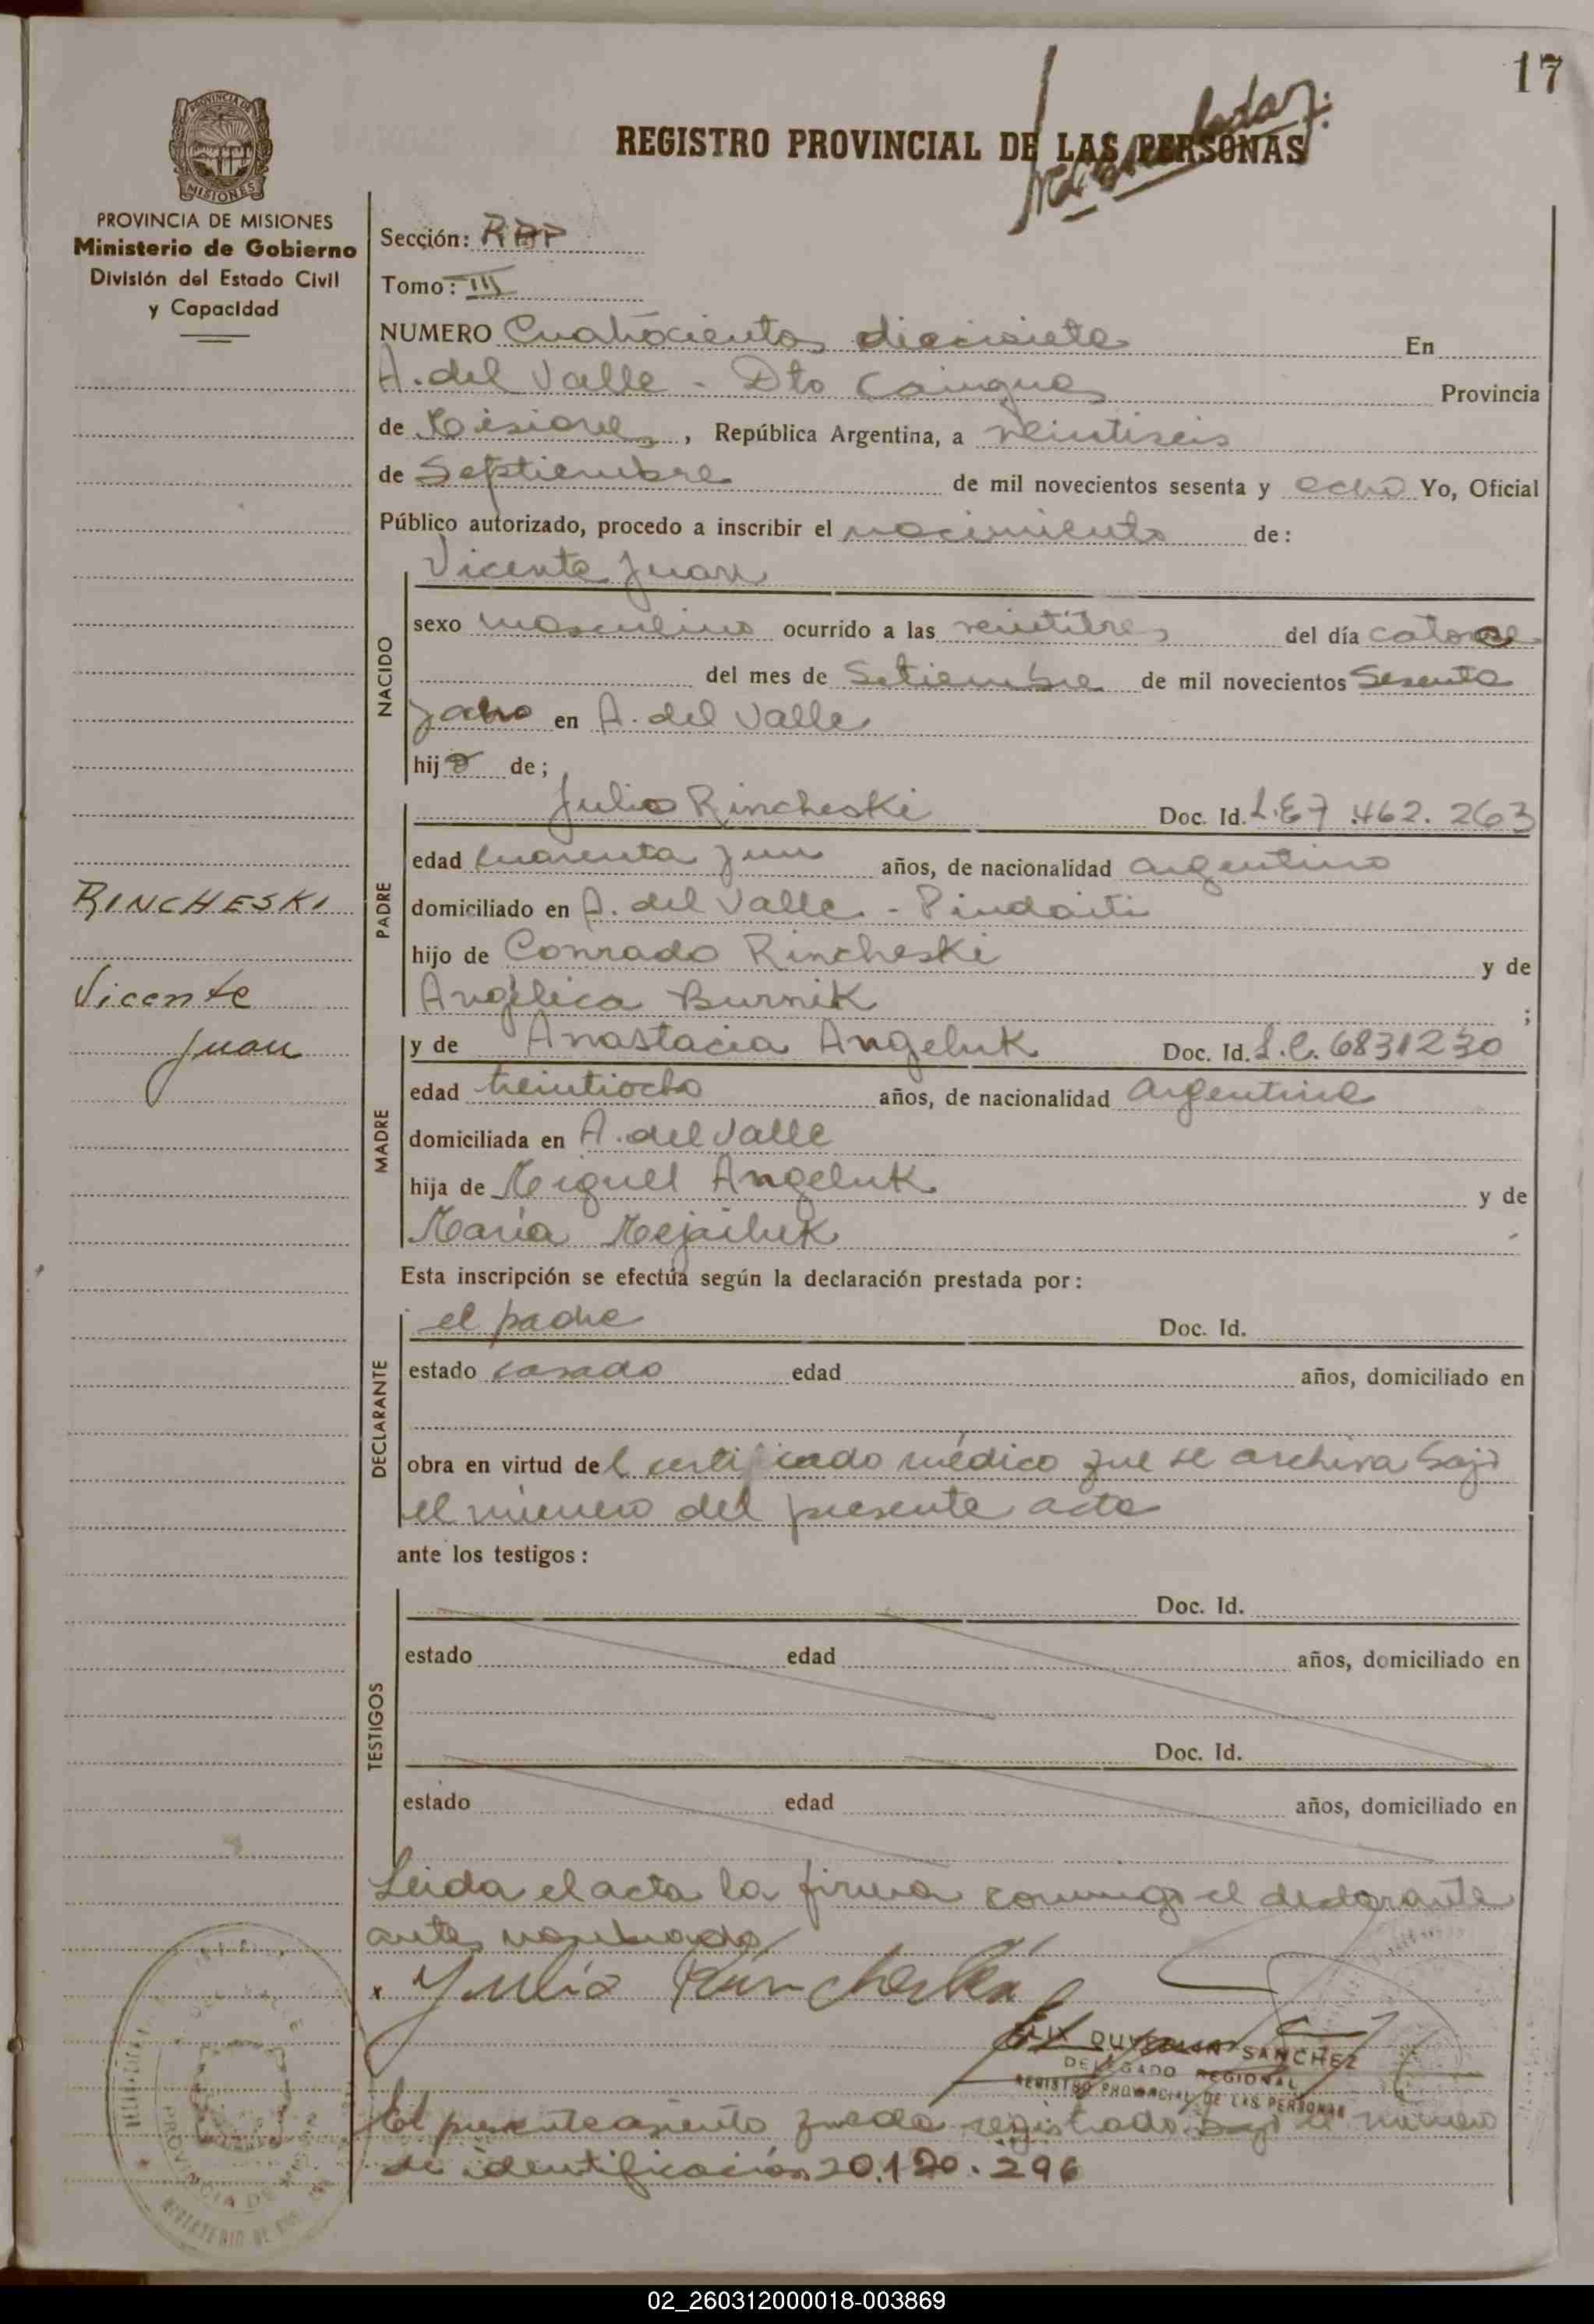 17
REGISTRO PROVINCIAL DE LAS PERSONAS
PROVINCIA DE
MISIONES
PROVINCIA DE MISIONES
Ministerio de Gobierno
División del Estado Civil
y Capacidad
Sección:
Tomo: III
NUMERO Cuatrocientos diecisiete En
A. del Valle - Dto Cainguas Provincia
de Misiones, República Argentina, a veintiseis
de Septiembre de mil novecientos sesenta y ocho Yo, Oficial
Público autorizado, procedo a inscribir el nacimiento de:
NACIDO
Vicente Juan
sexo masculino ocurrido a las veintitres del día catorce
del mes de Setiembre de mil novecientos Sesenta
y ocho en A. del Valle
hijo de;
PADRE
Julio Rincheski Doc. Id. L.E 7.462.263
edad cuarenta y un años, de nacionalidad argentino
domiciliado en A. del Valle - Pindaiti
hijo de Conrado Rincheski y de
Angélica Burnik ;
RINCHESKI
Vicente
Juan
MADRE
y de Anastacia Angeluk Doc. Id. L.C. 6831230
edad treintiocho años, de nacionalidad argentina
domiciliada en A. del Valle
hija de Miguel Angeluk y de
María Mejailuk
Esta inscripción se efectúa según la declaración prestada por:
DECLARANTE
el padre Doc. Id.
estado casado edad años, domiciliado en
obra en virtud del certificado médico que se archiva bajo
el número del presente acta
ante los testigos:
TESTIGOS
Doc. Id.
estado edad años, domiciliado en
Doc. Id.
estado edad años, domiciliado en
Leida el acta la firma conmigo el declarante
antes nombrado
x Julio Rincheski
SANCHEZ
DELEGADO REGIONAL
REGISTRO PROVINCIAL DE LAS PERSONAS
El presente asiento queda registrado bajo el número
de identificación 20.120.296
02_260312000018-003869